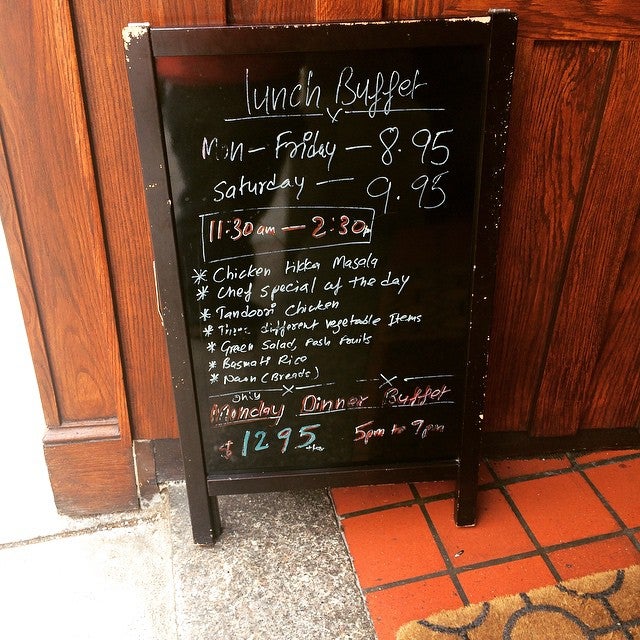 lunch Buffet
Mon - Friday - 8.95
saturday - 9.95
11:30am - 2:30pm
* Chicken tikka Masala
* Chef special of the day
* Tandoori Chicken
* Three different vegetable Items
* Green Salad, Fesh Fruits
* Basmati Rice
* Naan (Breads)
only
Munday Dinner Buffet
$ 1295 5pm to 9pm